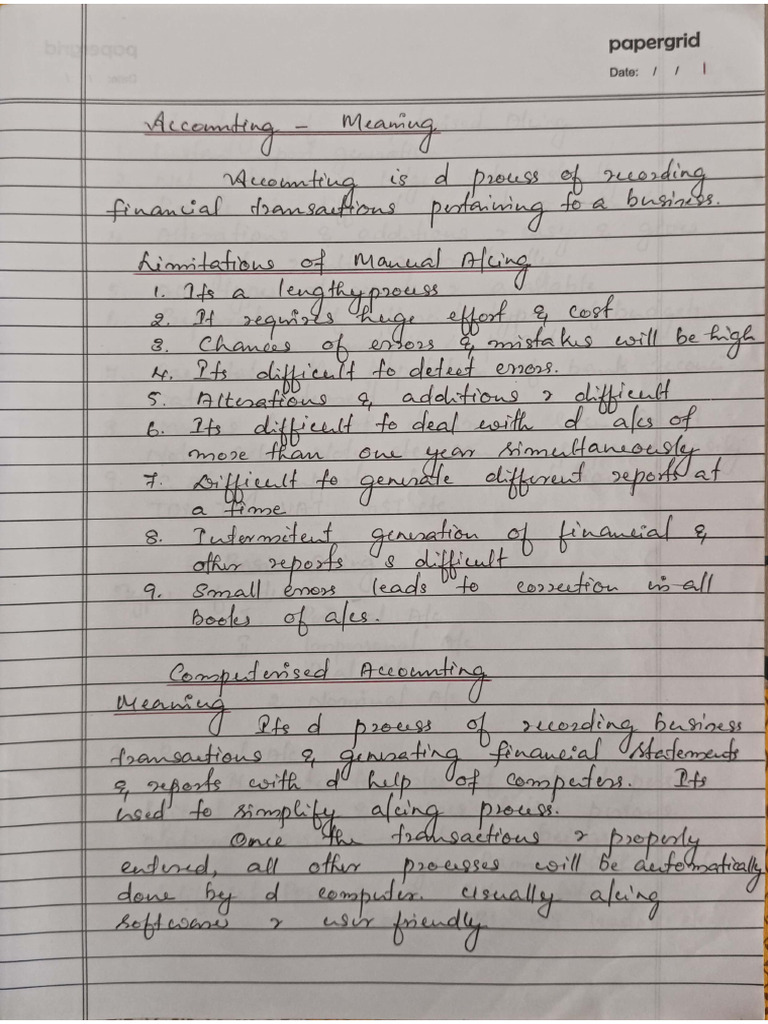 papergrid
Date: / / 1
Accounting - Meaning
Accounting is d process of recording
financial transactions pertaining to a business.
Limitations of Manual A/cing
1. Its a lengthy process
2. It requires huge effort & cost
3. Chances of errors & mistakes will be high
4. Its difficult to detect errors.
5. Alterations & additions r difficult
6. Its difficult to deal with d a/cs of
more than one year simultaneously
7. Difficult to generate different reports at
a time
8. Intermitent generation of financial &
other reports s difficult
9. Small errors leads to correction in all
Books of a/cs.
Computerised Accounting
Meaning
Its d process of recording business
transactions & generating financial statements
& reports with d help of computers. Its
used to simplify a/cing process.
Once the transactions r properly
entered, all other processes will be automatically
done by d computer. Usually a/cing
software r user friendly.